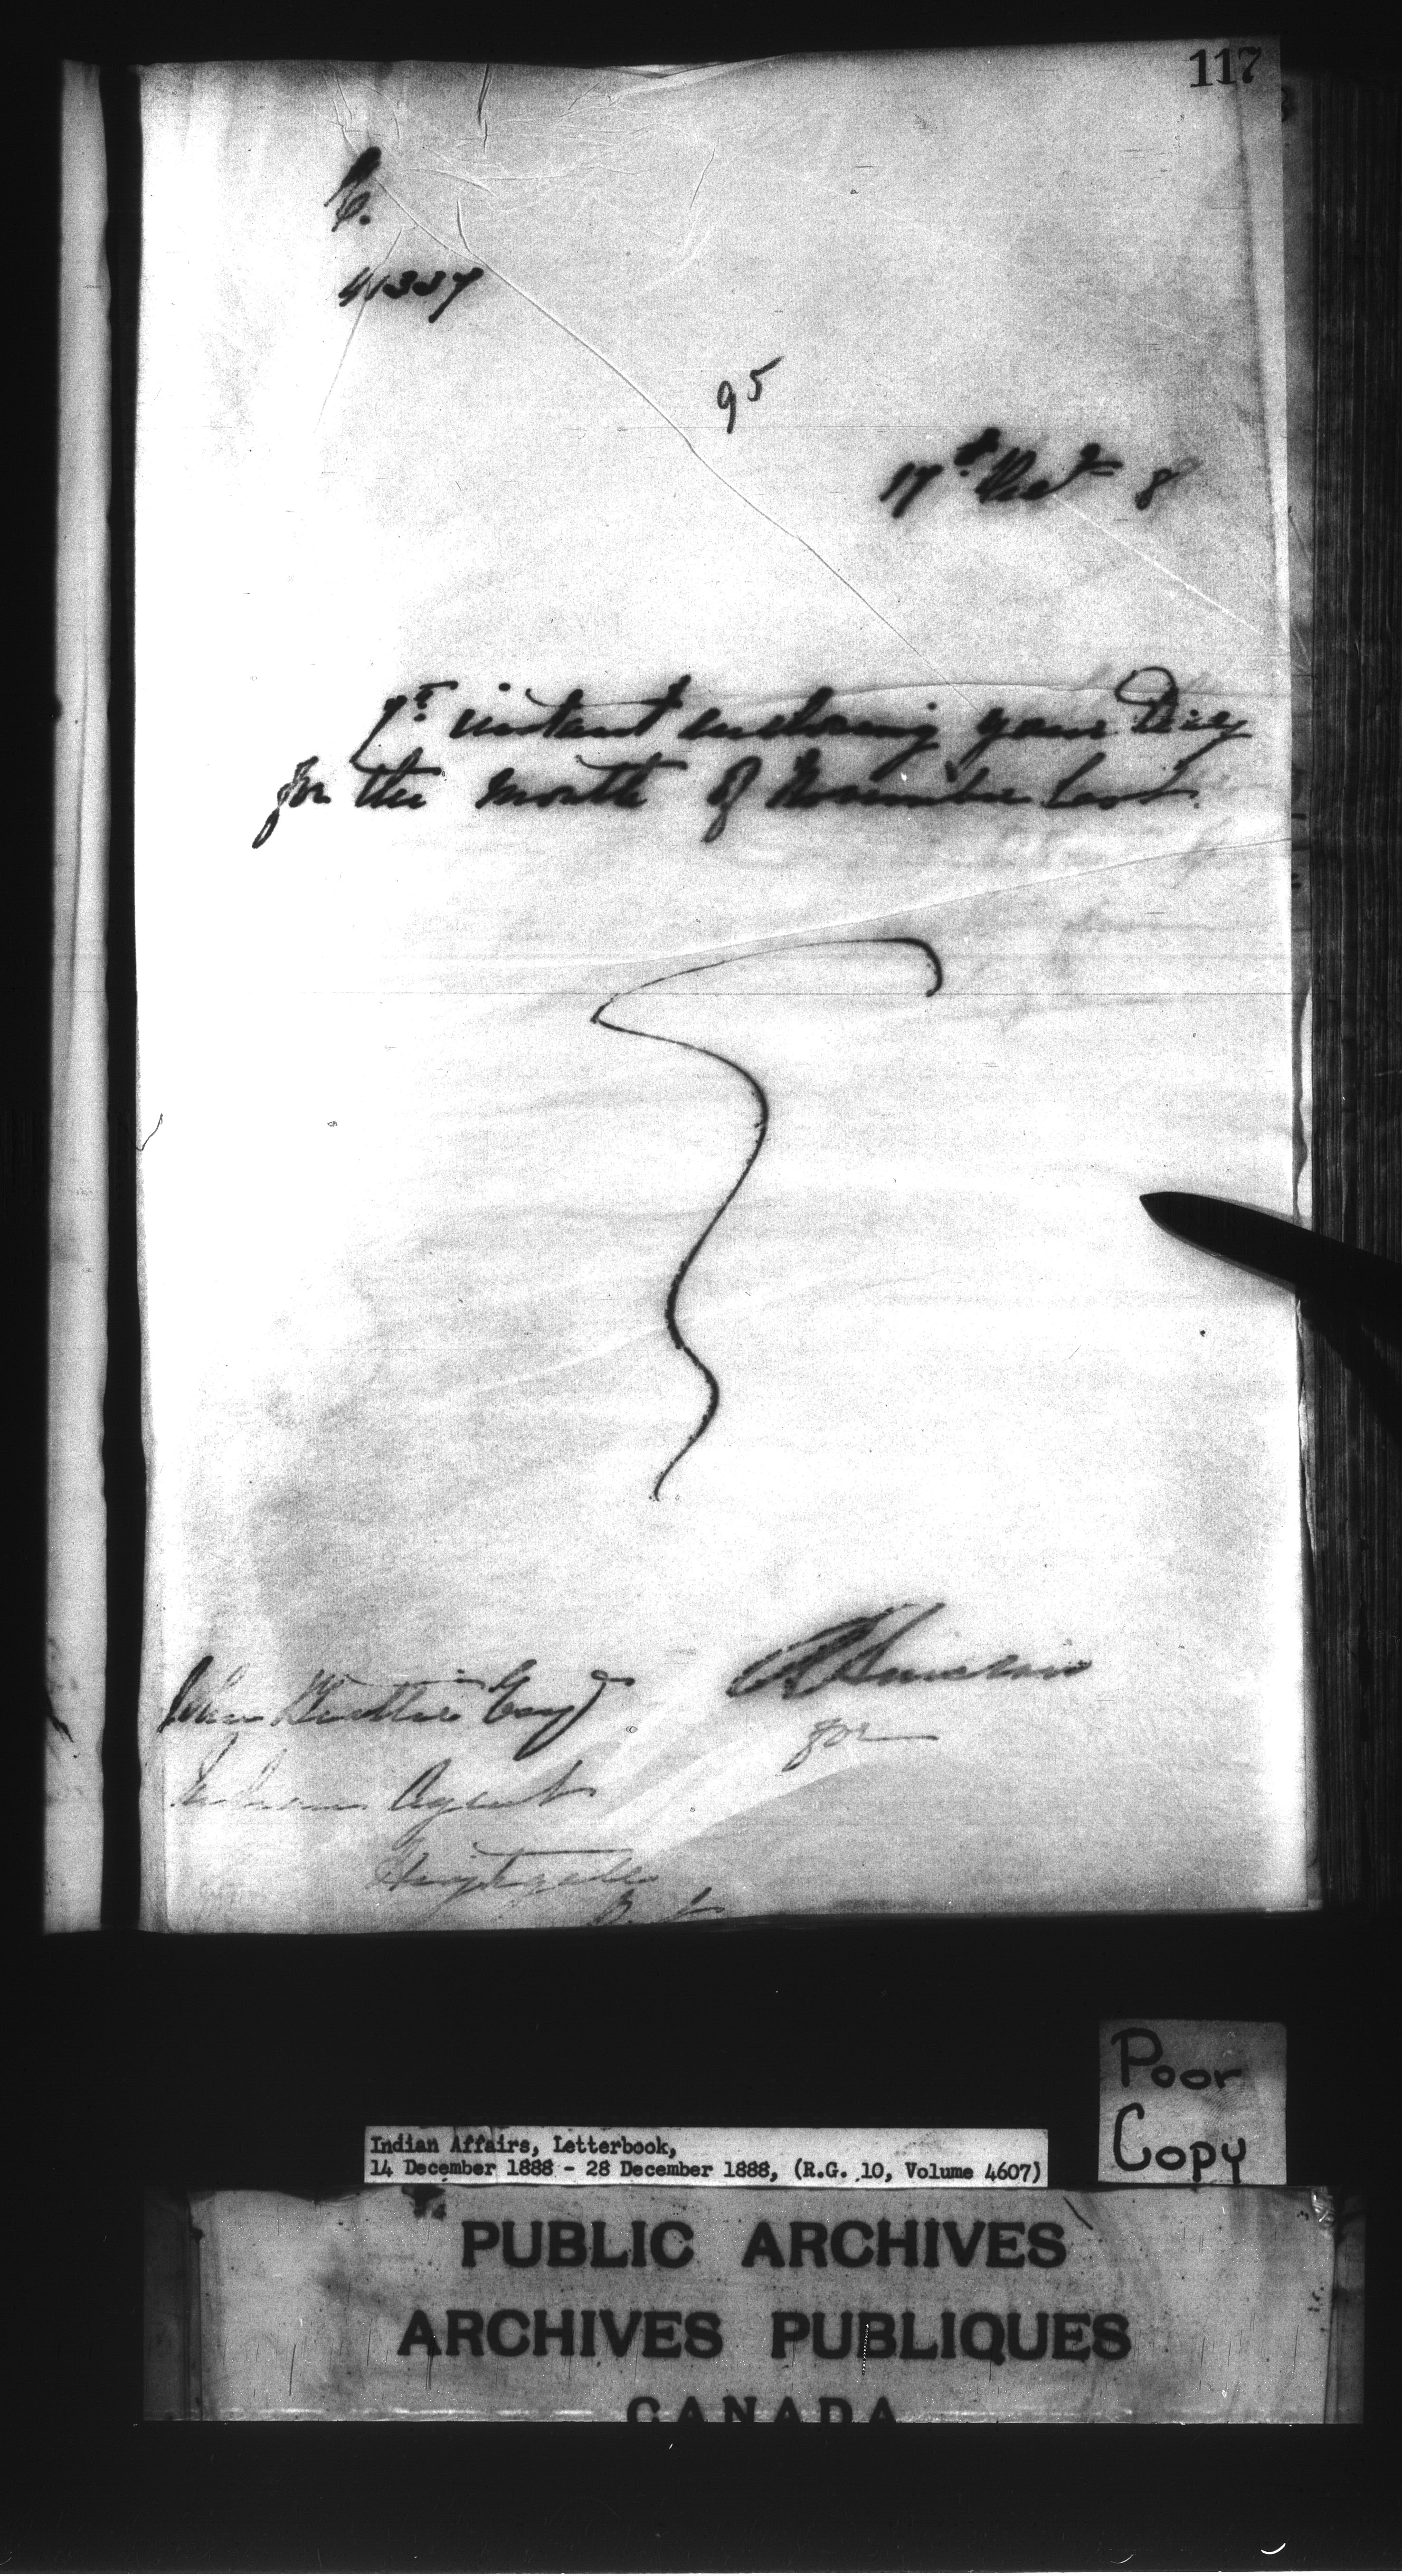 117
41337
95
17th Dec 8
7th instant enclosing your Diary
for the month of November last.
John Esqr
for
Indian Agent
Poor
Copy
Indian Affairs, Letterbook,
14 December 1888 - 28 December 1888, (R.G. 10, Volume 4607)
PUBLIC ARCHIVES
ARCHIVES PUBLIQUES
CANADA